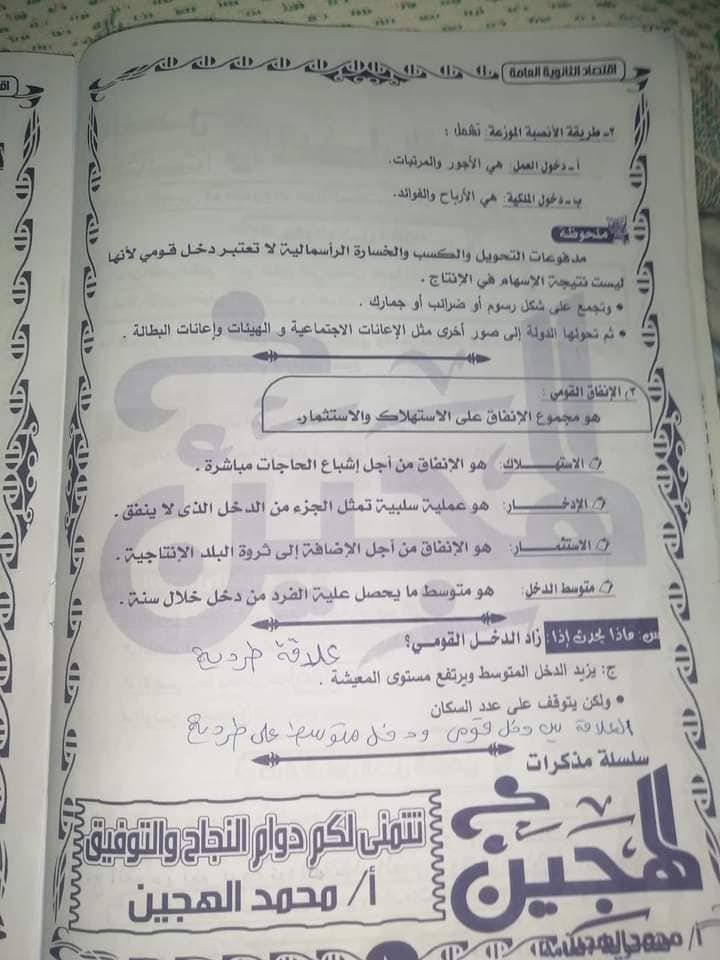 اقتصاد الثانوية العامة
٢ـ طريقة الأنصبة الموزعة: تشمل :
أ ـ دخول العمل: هي الأجور والمرتبات.
ب ـ دخول الملكية: هي الأرباح والفوائد.
ملحوظة
مدفوعات التحويل والكسب والخسارة الرأسمالية لا تعتبر دخل قومي لأنها
ليست نتيجة الإسهام في الإنتاج .
• وتجمع على شكل رسوم أو ضرائب أو جمارك .
• ثم تحولها الدولة إلى صور أخرى مثل الإعانات الاجتماعية و الهيئات وإعانات البطالة .
٣ـ الإنفاق القومي :
هو مجموع الإنفاق على الاستهلاك والاستثمار.
الاستهــلاك: هو الإنفاق من أجل إشباع الحاجات مباشرة .
الإدخــار: هو عملية سلبية تمثل الجزء من الدخل الذى لا ينفق .
الاستثمــار: هو الإنفاق من أجل الإضافة إلى ثروة البلد الإنتاجية .
متوسط الدخل: هو متوسط ما يحصل علية الفرد من دخل خلال سنة .
س: ماذا يحدث إذا: زاد الدخل القومي؟
علاقة طردية
ج: يزيد الدخل المتوسط ويرتفع مستوى المعيشة .
• ولكن يتوقف على عدد السكان
العلاقة بين دخل قومى ودخل متوسط طردية
سلسلة مذكرات
الهجين
نتمنى لكم دوام النجاح والتوفيق
أ/ محمد الهجين